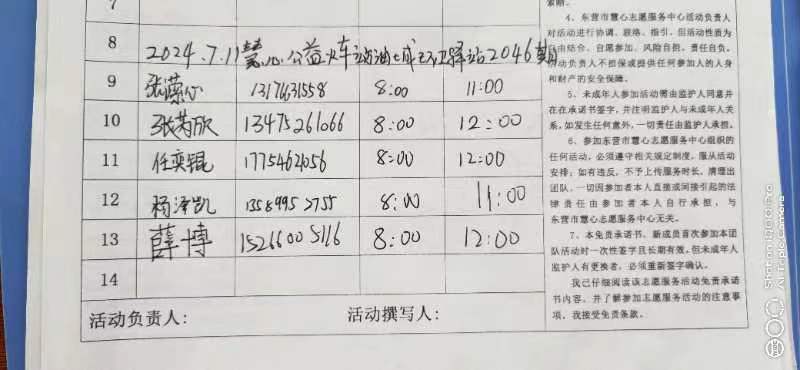 7
8 2024.7.11慧心公益火车站油城卫驿站2046期
9 张潆心 13176631558 8:00 11:00
10 张芮欣 13475261066 8:00 12:00
11 任奕锟 1775462056 8:00 12:00
12 杨泽凯 13589952755 8:00 11:00
13 薛博 15266005116 8:00 12:00
14
活动负责人： 活动撰写人：
4、东营市慧心志愿服务中心活动负责人
对活动进行协调、联络、指引，但活动性质为
自由结合、自愿参加、风险自担、责任自负。
活动负责人不担保或提供任何参加人的人身
和财产的安全保障。
5、未成年人参加活动需由监护人同意并
在在承诺书签字，并注明监护人与未成年人关
系，如发生任何意外，一切责任由监护人承担。
6、参加东营市慧心志愿服务中心组织的
任何活动，必须遵守相关规定制度，服从活动
安排；如有违反，不予上传服务时长，清理出
团队，一切因参加者本人直接或间接引起的法
律责任由参加者本人自行承担，与
东营市慧心志愿服务中心无关。
7、本免责承诺书，新成员首次参加本团
队活动时一次性签字且长期有效。但未成年人
监护人有更换者，必须重新签字确认。
我已仔细阅读该志愿服务活动免责承诺
书内容，并了解参加志愿服务活动的注意事
项，我接受免责条款。